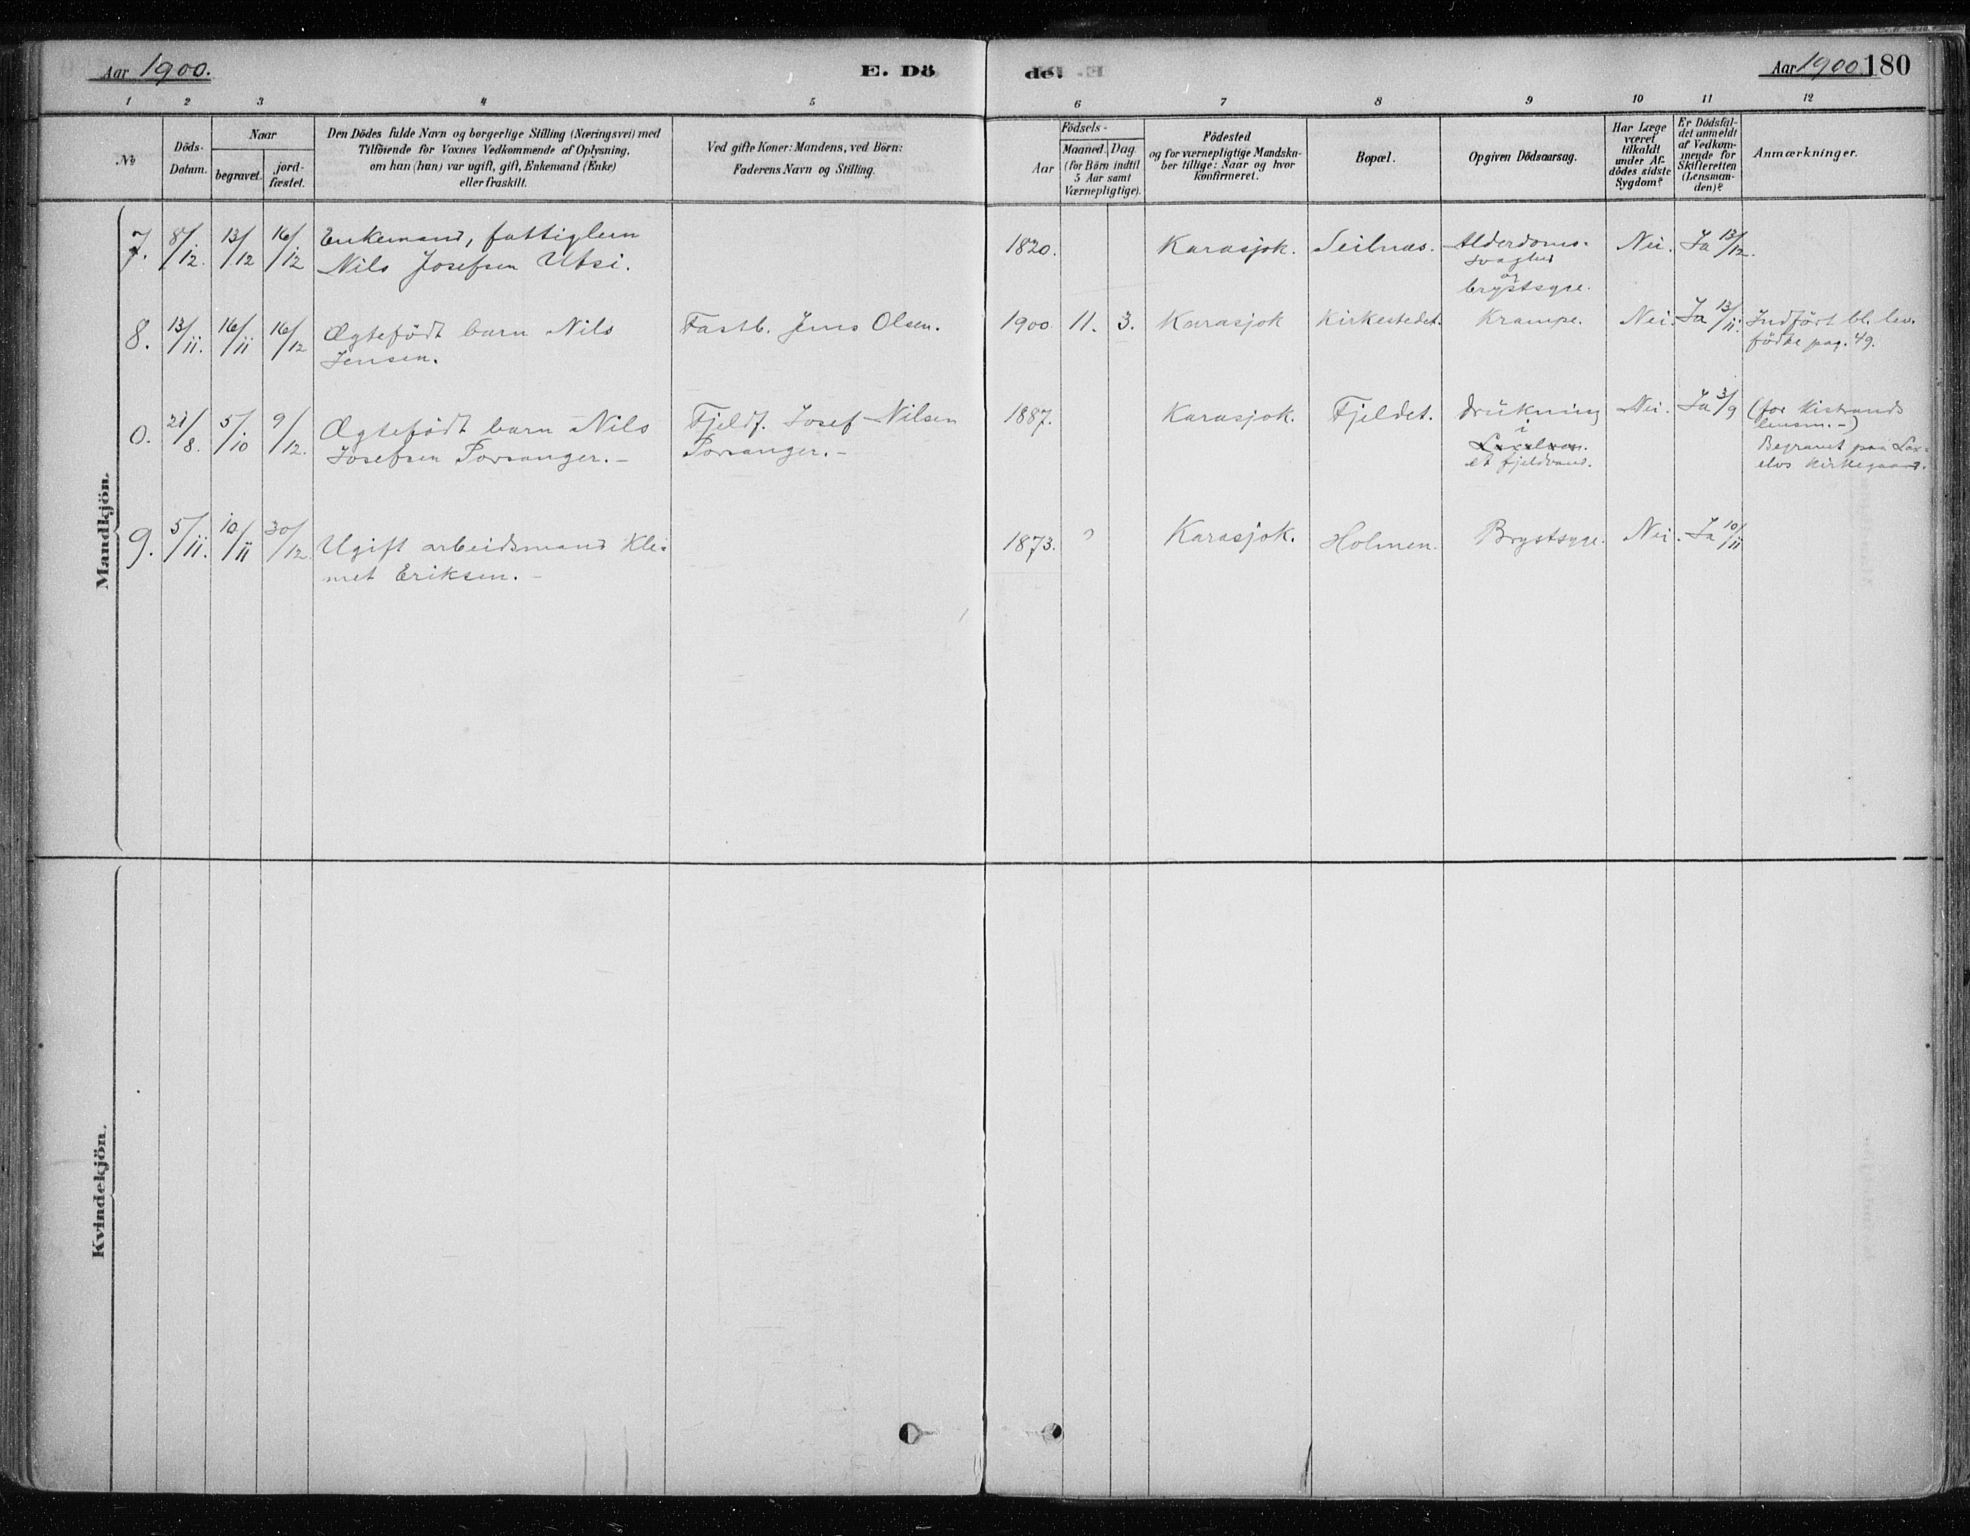 Aar 1900. E. Dö de. Aar 1900. 180
1 2 3 4 5 6 7 8 9 10 11 12
No
Döds-
Datum.
Naar
begravet.
jord-
fæstet.
Den Dödes fulde Navn og borgerlige Stilling (Næringsvei) med
Tilföiende for Voxnes Vedkommende af Oplysning,
om han (hun) var ugift, gift, Enkemand (Enke)
eller fraskilt.
Ved gifte Koner: Mandens, ved Börn:
Faderens Navn og Stilling.
Födsels-
Aar
Maaned. Dag
(for Börn indtil
5 Aar samt
Værnepligtige).
Födested
og for værnepligtige Mandska-
ber tillige: Naar og hvor
konfirmeret.
Bopæl.
Opgiven Dödsaarsag.
Har Læge
været
tilkaldt
under Af-
dödes sidste
Sygdom?
Er Dödsfal-
det anmeldt
af Vedkom-
mende for
Skifteretten
(Lensman-
den)?
Anmærkninger.
Mandkjön.
7. 8/12. 13/12 16/12 Enkemand, fattiglem
Nils Josefsen Utsi.
1820. Karasjok. Seilnæs. Alderdoms-
svaghed
og
brystsyge.
Nei. Ja 13/12.
8. 13/11. 16/11 16/12 Ægtefödt barn Nils
Jensen.
Fastb. Jens Olsen.
1900 11. 3. Karasjok Kirkestedet. Krampe. Nei. Ja 13/11. Indfört bl. lev.
födte pag. 49.
0. 21/8. 5/10 9/12. Ægtefödt barn Nils
Josefsen Porsanger. –
Fjeldf. Josef Nilsen
Porsanger. –
1887. Karasjok. Fjeldet. Drukning
i
et fjeldvand.
Nei. Ja 3/9 (for Kistrands
lensm. –)
Begravet paa Lax-
elvs kirkegaard.
9. 5/11. 10/11 30/12. Ugift arbeidsmand Kle-
met Eriksen. –
1873. ? Karasjok. Holmen. Brystsyge. Nei. Ja 10/11
Kvindekjön.